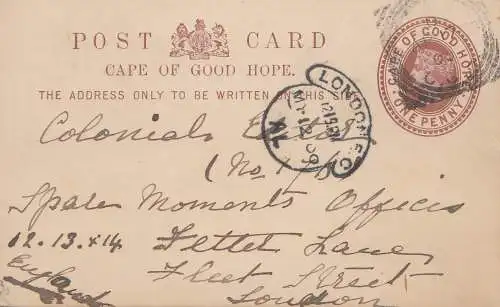 POST CARD
CAPE OF GOOD HOPE.
THE ADDRESS ONLY TO BE WRITTEN ON THIS SIDE
CAPE OF GOOD HOPE
ONE PENNY
LONDON E.C
Colonial
(No 17)
Spare Moments Offices
12. 13. & 14 Fetter Lane
Fleet Street
London
England